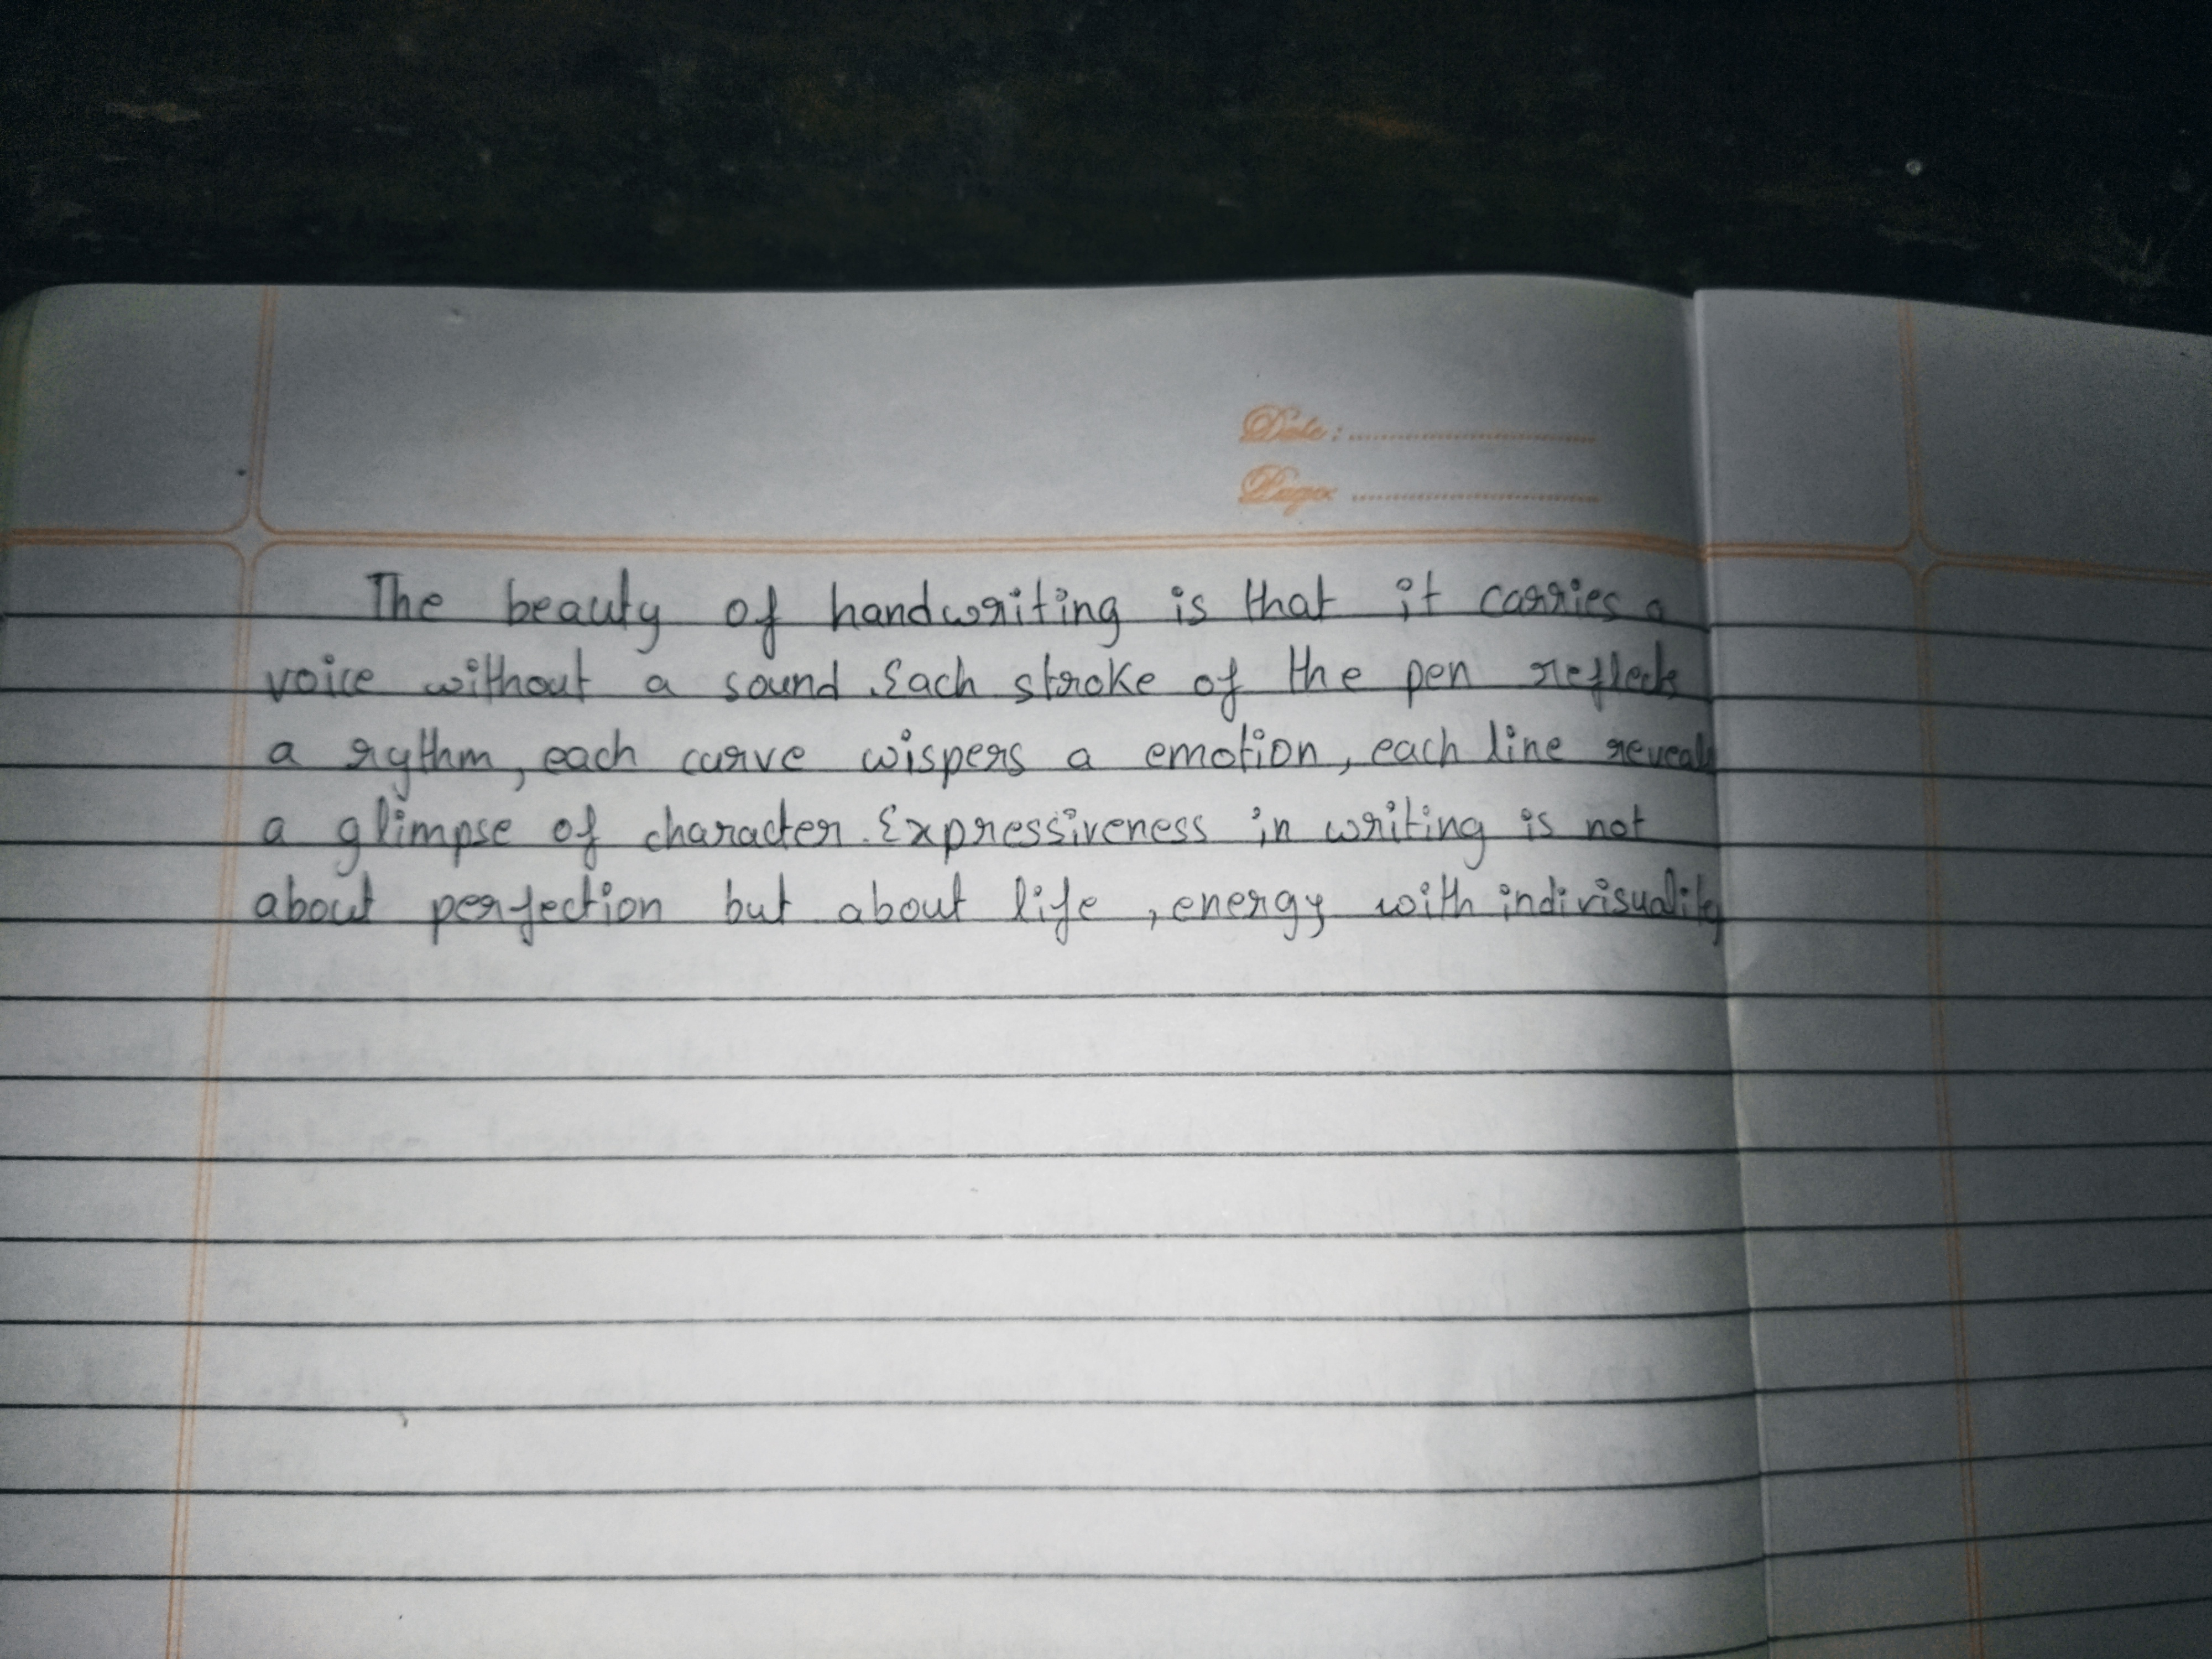 Date :
Page:
The beauty of handwriting is that it carries a
voice without a sound. Each stroke of the pen reflects
a rythm, each curve wispers a emotion, each line reveals
a glimpse of character. Expressiveness in writing is not
about perfection but about life , energy with indivisuality